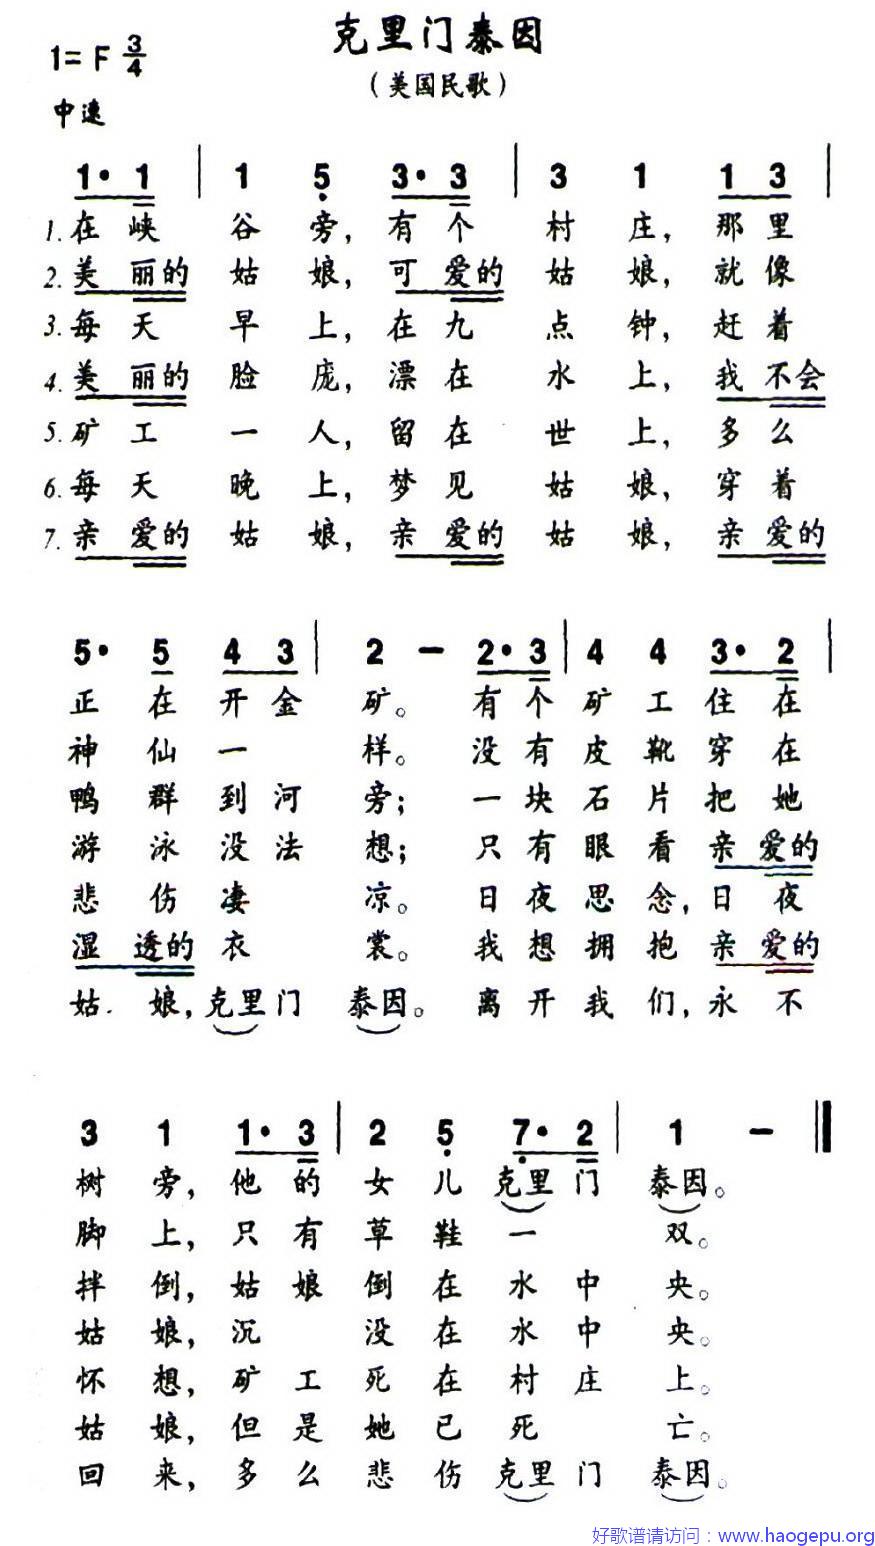 克里门泰因
1= F 3/4
（美国民歌）
中速
1· 1 | 1 5 3· 3 | 3 1 1 3 |
1.在峡谷旁，有个村庄，那里
2.美丽的姑娘，可爱的姑娘，就像
3.每天早上，在九点钟，赶着
4.美丽的脸庞，漂在水上，我不会
5.矿工一人，留在世上，多么
6.每天晚上，梦见姑娘，穿着
7.亲爱的姑娘，亲爱的姑娘，亲爱的
5· 5 4 3 | 2 – 2· 3 | 4 4 3· 2 |
正在开金矿。有个矿工住在
神仙一样。没有皮靴穿在
鸭群到河旁；一块石片把她
游泳没法想；只有眼看亲爱的
悲伤凄凉。日夜思念，日夜
湿透的衣裳。我想拥抱亲爱的
姑娘，克里门泰因。离开我们，永不
3 1 1· 3 | 2 5 7· 2 | 1 – ‖
树旁，他的女儿克里门泰因。
脚上，只有草鞋一双。
拌倒，姑娘倒在水中央。
姑娘，沉没在水中央。
怀想，矿工死在村庄上。
姑娘，但是她已死亡。
回来，多么悲伤克里门泰因。
好歌谱请访问：www.haogepu.org